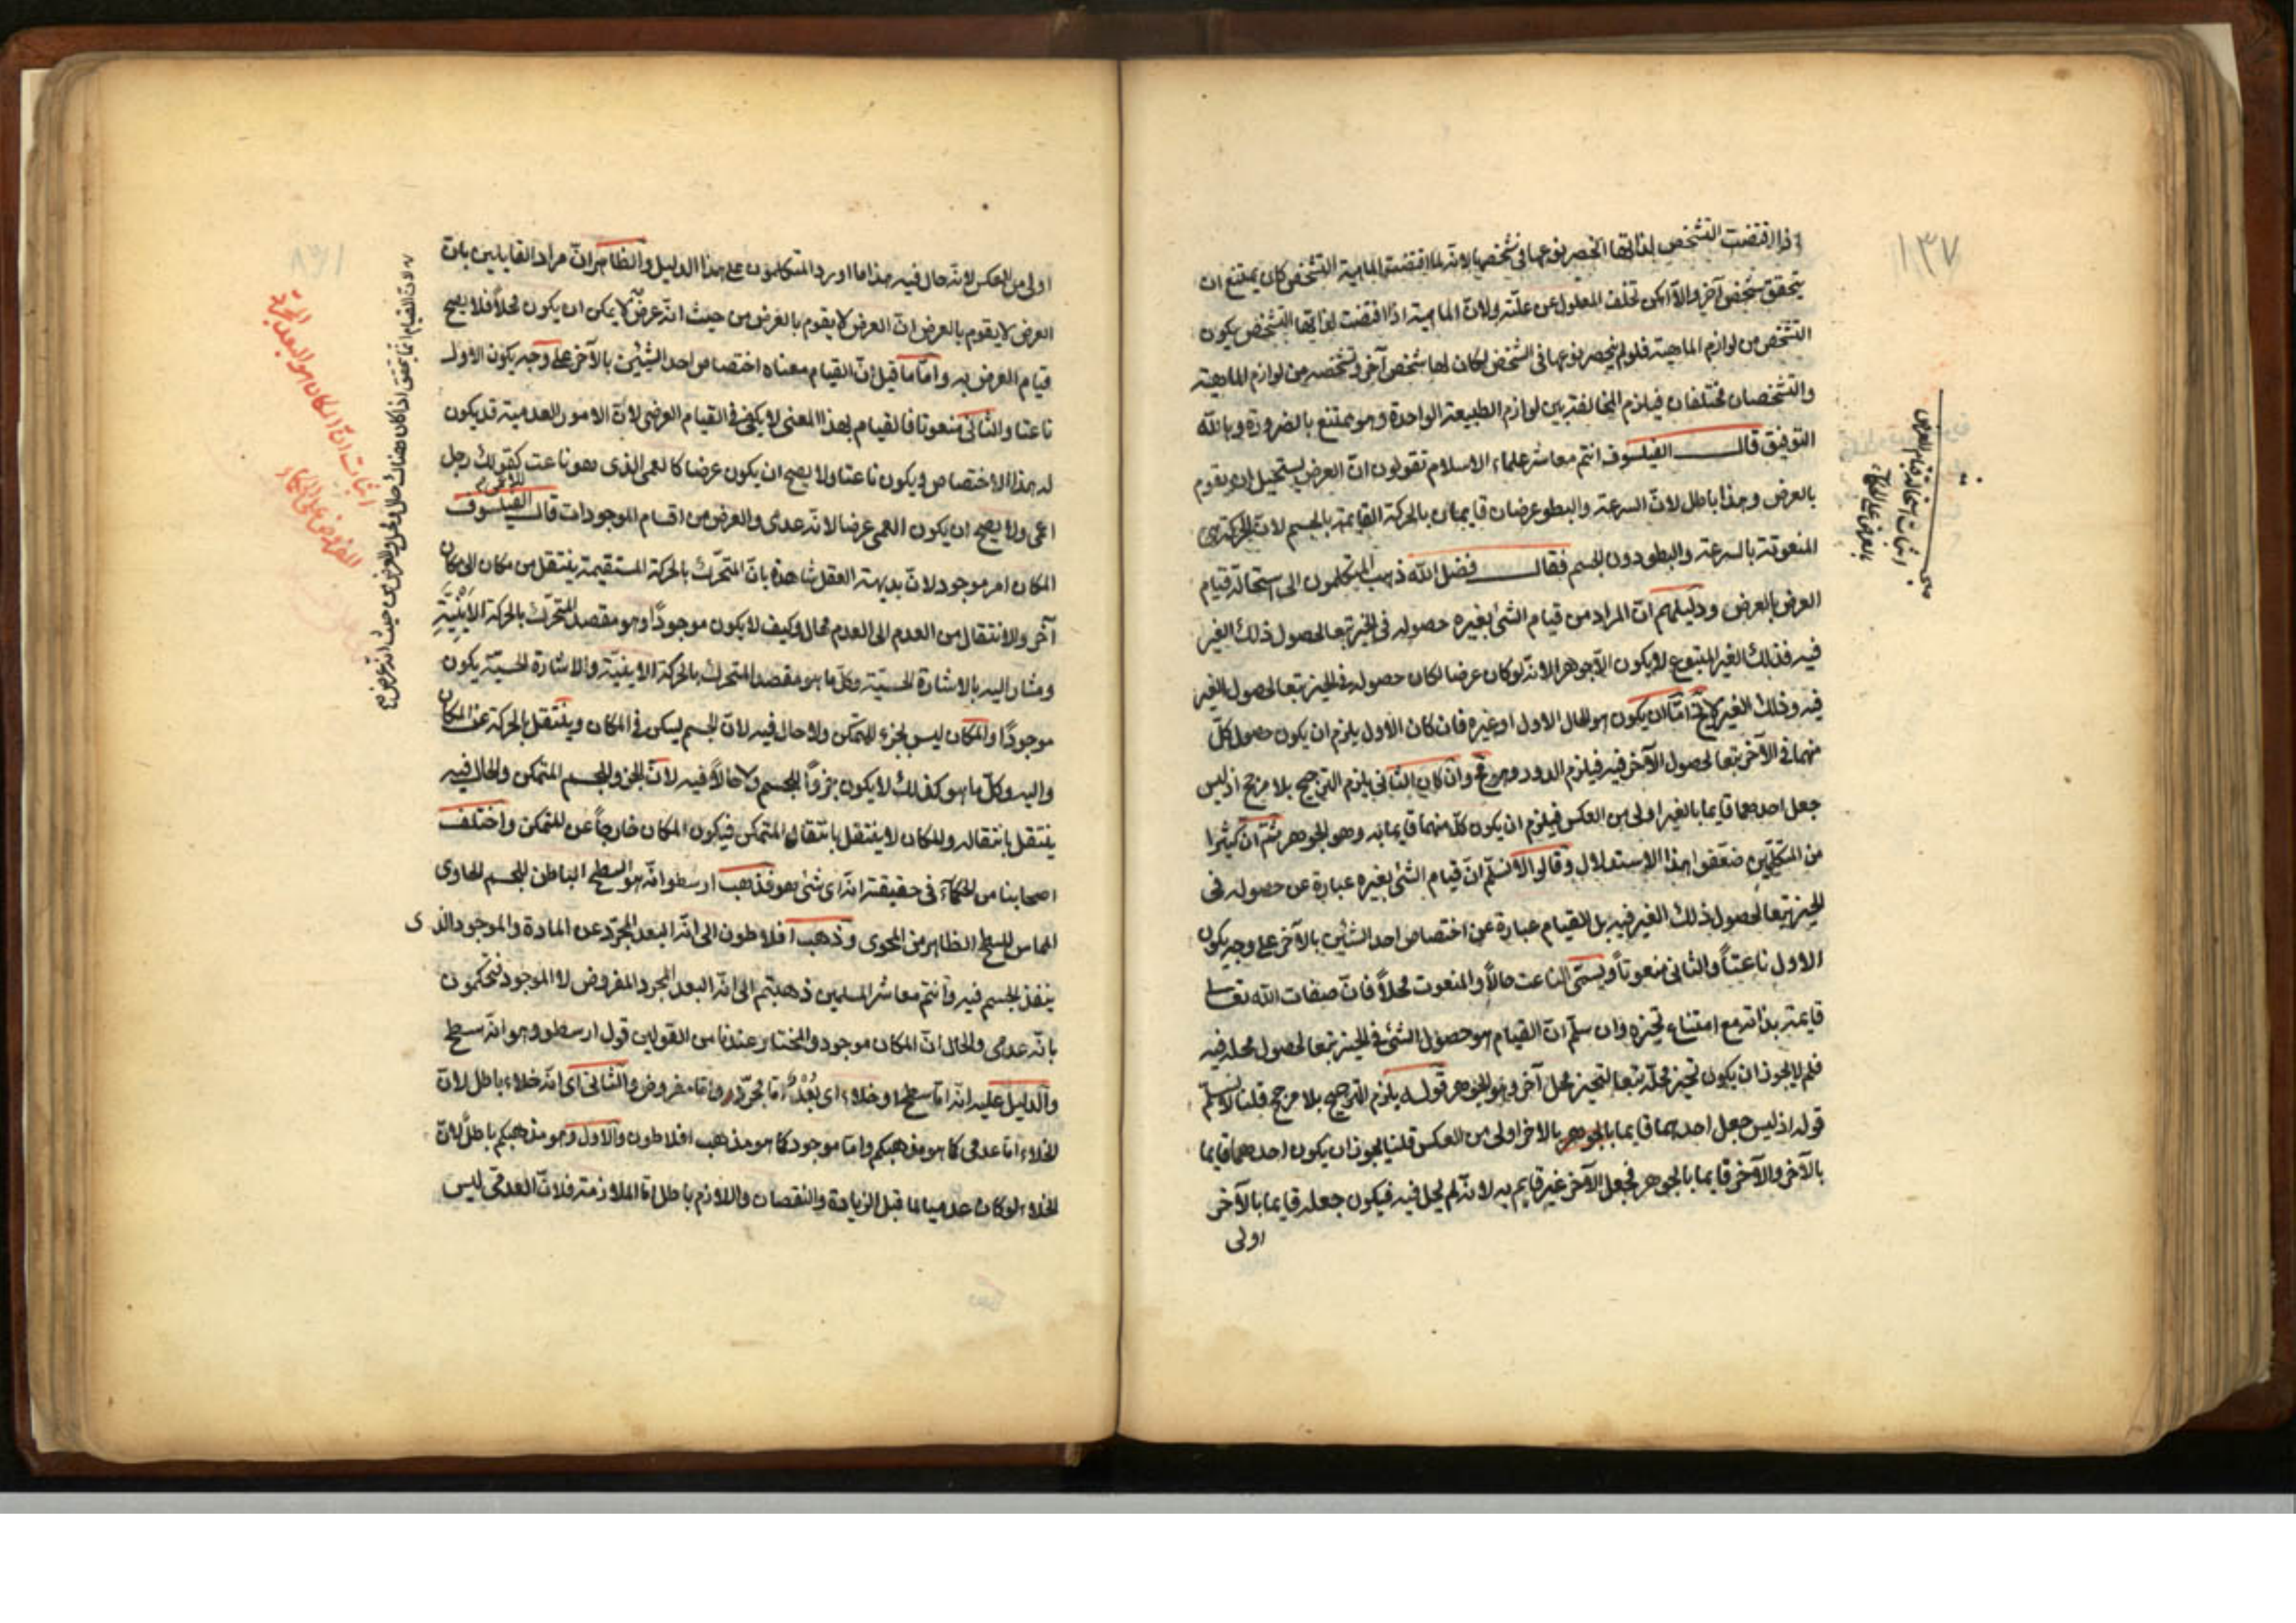 ١٣٧
اذا اقتضت التشخص لذاتها انحصر نوعها فى شخصها لانه لما اقتضت الماهية التشخص كان يمتنع ان
يتحقق شخص آخر والا امكن تخلف المعلول عن علته ولان الماهية اذا اقتضت لذاتها التشخص يكون
التشخص من لوازم الماهية فلو لم ينحصر نوعها فى الشخص لكان لها شخص آخر وتشخصه من لوازم الماهية
والتشخصان مختلفان فيلزم المخالفة بين لوازم الطبيعة الواحدة وهو ممتنع بالضرورة وبالله
التوفيق قال الفيلسوف انتم معاشر علماء الاسلام تقولون ان العرض يستحيل ان يقوم
بالعرض وهذا باطل لان السرعة والبطو عرضان قايمان بالحركة القايمة بالجسم لان الحركة هى
المنعوتة بالسرعة والبطو دون الجسم فقال فضل الله ذهب المتكلمون الى استحالة قيام
العرض بالعرض ودليلهم ان المراد من قيام الشئ بغيره حصوله فى الحيز تبعا لحصول ذلك الغير
فيه فذلك الغير المتبوع لا يكون الا جوهرا لانه لو كان عرضا لكان حصوله فى الحيز تبعا لحصول الغير
فيه وذلك الغير لا يخ اما ان يكون هو الحال الاول او غيره فان كان الاول يلزم ان يكون حصول كل
منهما فى الآخر تبعا لحصول الآخر فيه فيلزم الدور وهو مح وان كان الثانى يلزم الترجيح بلا مرجح اذ ليس
جعل احدهما قايما بالغير اولى من العكس فيلزم ان يكون كل منهما قايما به وهو الجوهر ثم ان كثيرا
من المتكلمين ضعفوا هذا الاستدلال وقالوا لا نسلم ان قيام الشئ بغيره عبارة عن حصوله فى
الحيز تبعا لحصول ذلك الغير فيه بل القيام عبارة عن اختصاص احد الشائين بالآخر على وجه يكون
الاول ناعتاً والثانى منعوتاً ويسمى الناعت حالاً والمنعوت محلاً فان صفات الله تعالى
قايمة بذاته مع امتناع تحيزه وان سلم ان القيام هو حصول الشئ فى الحيز تبعا لحصول محله فيه
فلم لا يجوز ان يكون تحيز محله تبعا لتحيز محل آخر وهو الجوهر قوله يلزم الترجيح بلا مرجح قلنا لا نسلم
قوله اذ ليس جعل احدهما قايما بالجوهر بالاخر اولى من العكس قلنا يجوز ان يكون احدهما قايما
بالآخر والآخر قايما بالجوهر فجعل الآخر غير قايم به لانه لم يحل فيه فيكون جعله قايما بالآخر
اولى
اثبات استحالة قيام العرض
بالعرض على الحكماء
اولى من العكس لانه حال فيه هذا ما اورد المتكلمون على هذا الدليل والظاهر ان مراد القايلين بان
العرض لا يقوم بالعرض ان العرض لا يقوم بالعرض من حيث انه عرض لا يمكن ان يكون محلاً فلا يصح
قيام العرض به واما ما قيل ان القيام معناه اختصاص احد الشيئين بالآخر على وجه يكون الاول
ناعتا والثانى منعوتا فالقيام بهذا المعنى لا يكفى فى القيام العرضى لان الامور العدمية قد يكون
له هذا الاختصاص ويكون ناعتا ولا يصح ان يكون عرضا كالعمى الذى هو ناعت كقولك رجل
اعمى ولا يصح ان يكون العمى عرضا لانه عدمى والعرض من اقسام الموجودات قال الفيلسوف
المكان امر موجود لان بديهة العقل شاهدة بان المتحرك بالحركة المستقيمة ينتقل من مكان الى مكان
آخر والانتقال من العدم الى العدم محال وكيف لا يكون موجوداً وهو مقصد المتحرك بالحركة الاينية
ومشار اليه بالاشارة الحسية وكل ما هو مقصد المتحرك بالحركة الاينية والاشارة الحسية يكون
موجوداً والمكان ليس بجزء للمتمكن ولا حال فيه لان الجسم يسكن فى المكان وينتقل بالحركة عن المكان
واليه وكل ما هو كذلك لا يكون جزواً للجسم ولا حالاً فيه لان الجزء للجسم المتمكن والحال فيه
ينتقل بانتقاله والمكان لا ينتقل بانتقال المتمكن فيكون المكان خارجاً عن المتمكن واختلف
اصحابنا من الحكماء فى حقيقته انه اى شئ هو فذهب ارسطو انه هو السطح الباطن للجسم الحاوى
المماس للسطح الظاهر من المحوى وذهب افلاطون الى انه البعد المجرد عن المادة والموجود الذى
ينفذ الجسم فيه وانتم معاشر المسلمين ذهبتم الى انه البعد المجرد المفروض لا الموجود فتحكمون
بانه عدمى والحال ان المكان موجود والمختار عندنا من القولين قول ارسطو وهو انه سطح
والدليل عليه انه اما سطح او خلاء اى بُعْدٌ اما مجرد واما مفروض والثانى اى انه خلاء باطل لان
الخلاء اما عدمى كما هو مذهبكم واما موجود كما هو مذهب افلاطون والاول وهو مذهبكم باطل لان
الخلاء لو كان عدميا لما قبل الزيادة والنقصان واللازم باطل اما الملازمة فلان العدمى ليس
لان القيام انما يتحقق اذا كان هناك حال ومحل والعرض من حيث انه عرض
اثبات ان المكان هو البعد المجرد
المفروض على الحكماء